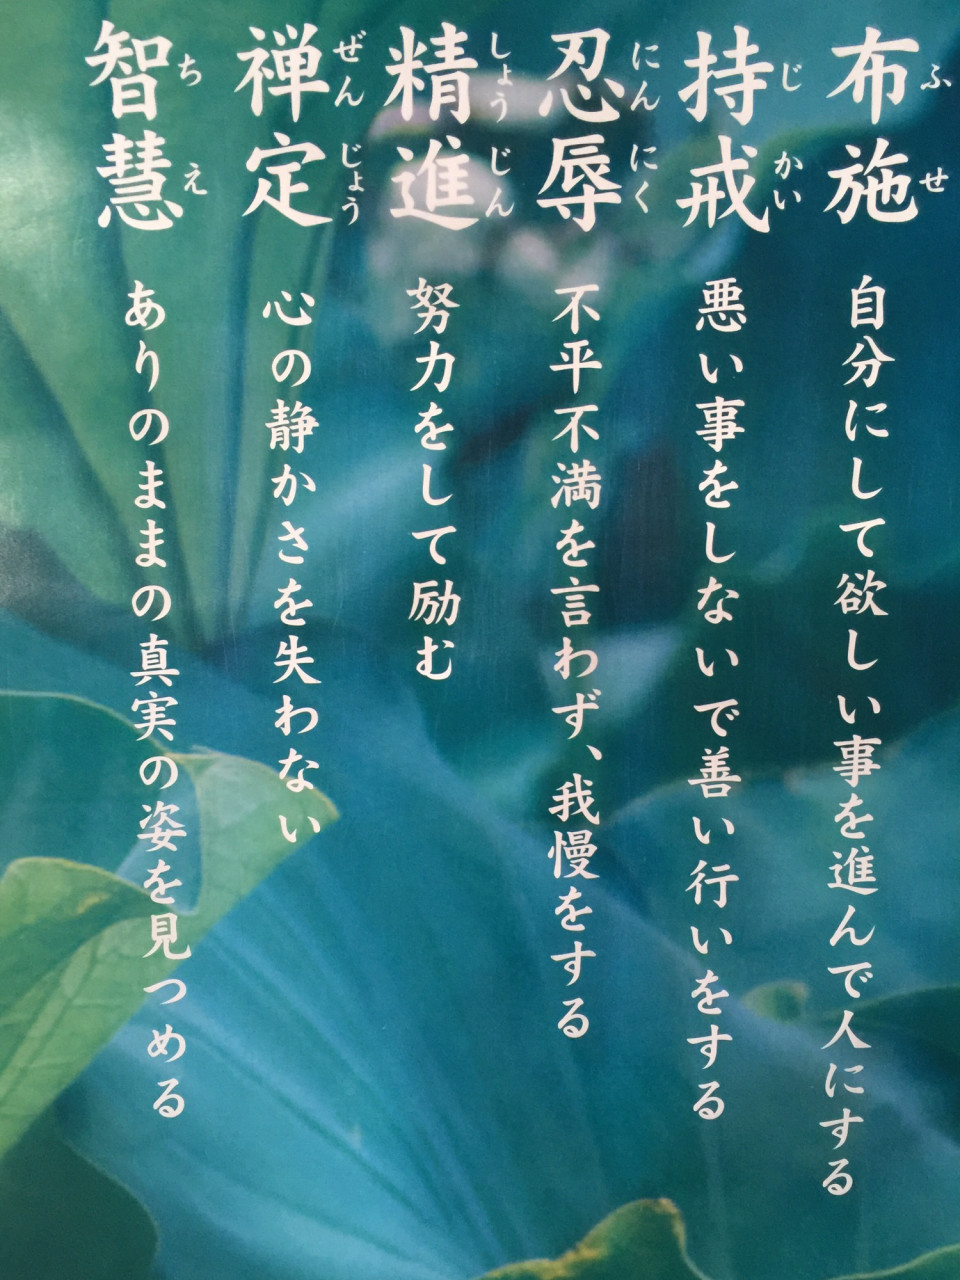 布施 ふせ
自分にして欲しい事を進んで人にする
持戒 じかい
悪い事をしないで善い行いをする
忍辱 にんにく
不平不満を言わず、我慢をする
精進 しょうじん
努力をして励む
禅定 ぜんじょう
心の静かさを失わない
智慧 ちえ
ありのままの真実の姿を見つめる